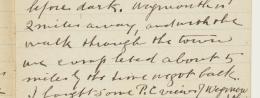 before dark. Weymouth is
2 miles away, and with the
walk through the town
we completed about 5
miles by the time we got back.
I bought some P.C views of Weymou